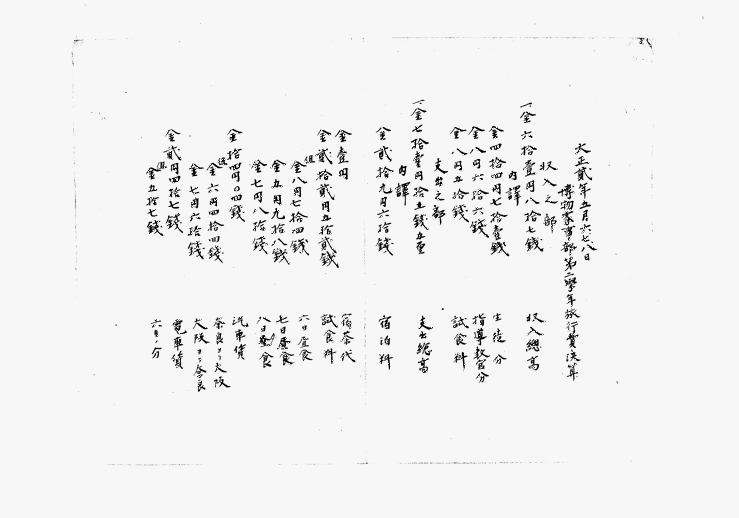 大正貳年五月六七八日
博物家事部第二學年旅行費決算
収入之部
一金六拾壹円八拾七錢 収入總高
内譯
金四拾四円七拾壹錢 生徒分
金八円六拾六錢 指導教官分
金八円五拾錢 試食料
支出之部
一金七拾壹円拾五錢五厘 支出總高
内譯
金貳拾九円六拾錢 宿泊料
金壹円 宿茶代
金貳拾貳円五拾貳錢 試食料
内金八円七拾四錢 六日昼食
金五円九拾八錢 七日昼食
金七円八拾錢 八日昼食
金拾四円〇四錢 汽車賃
内金六円四拾四錢 奈良ヨリ大阪
金七円六拾錢 大阪ヨリ奈良
金貳円四拾七錢 電車賃
内金五拾七錢 六日ノ分